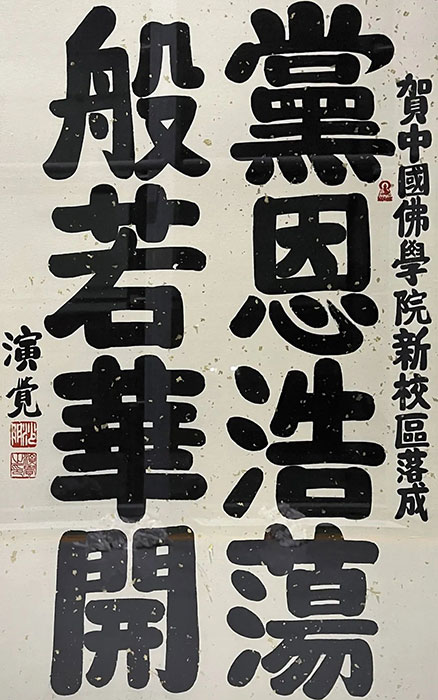 賀中國佛學院新校區落成
黨恩浩蕩
般若華開
演覺